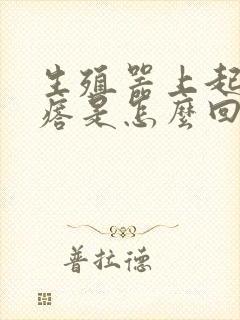 生殖器上起
痞是怎麼回
普拉德